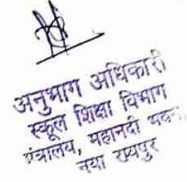 अनुभाग अधिकारी
स्कूल शिक्षा विभाग
मंत्रालय, महानदी भवन,
नया रायपुर